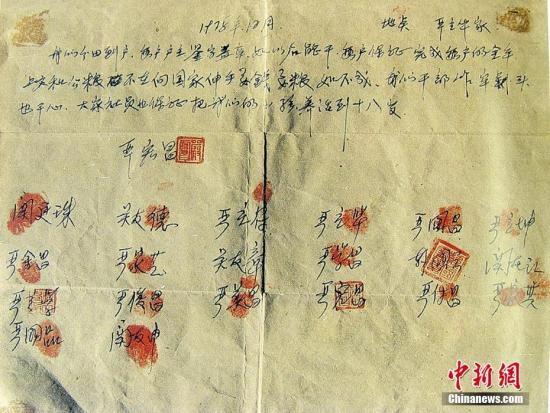 1978年12月 地点 严立华家
我们分田到户,每户户主签字盖章,如以后能干,每户保证完成每户的全年
上交和公粮 不在向国家伸手要钱要粮,如不成,我们干部作牢刹头
也干心,大家社员也保证把我们的小孩养活到十八岁
严宏昌
关廷珠 关友德 严立符 严立华 严国昌 严立坤
严金昌 严家芝 关友章 严学昌 韩国云
严俊昌 严美昌 严付昌
严国品 关友申
中新网
Chinanews.com